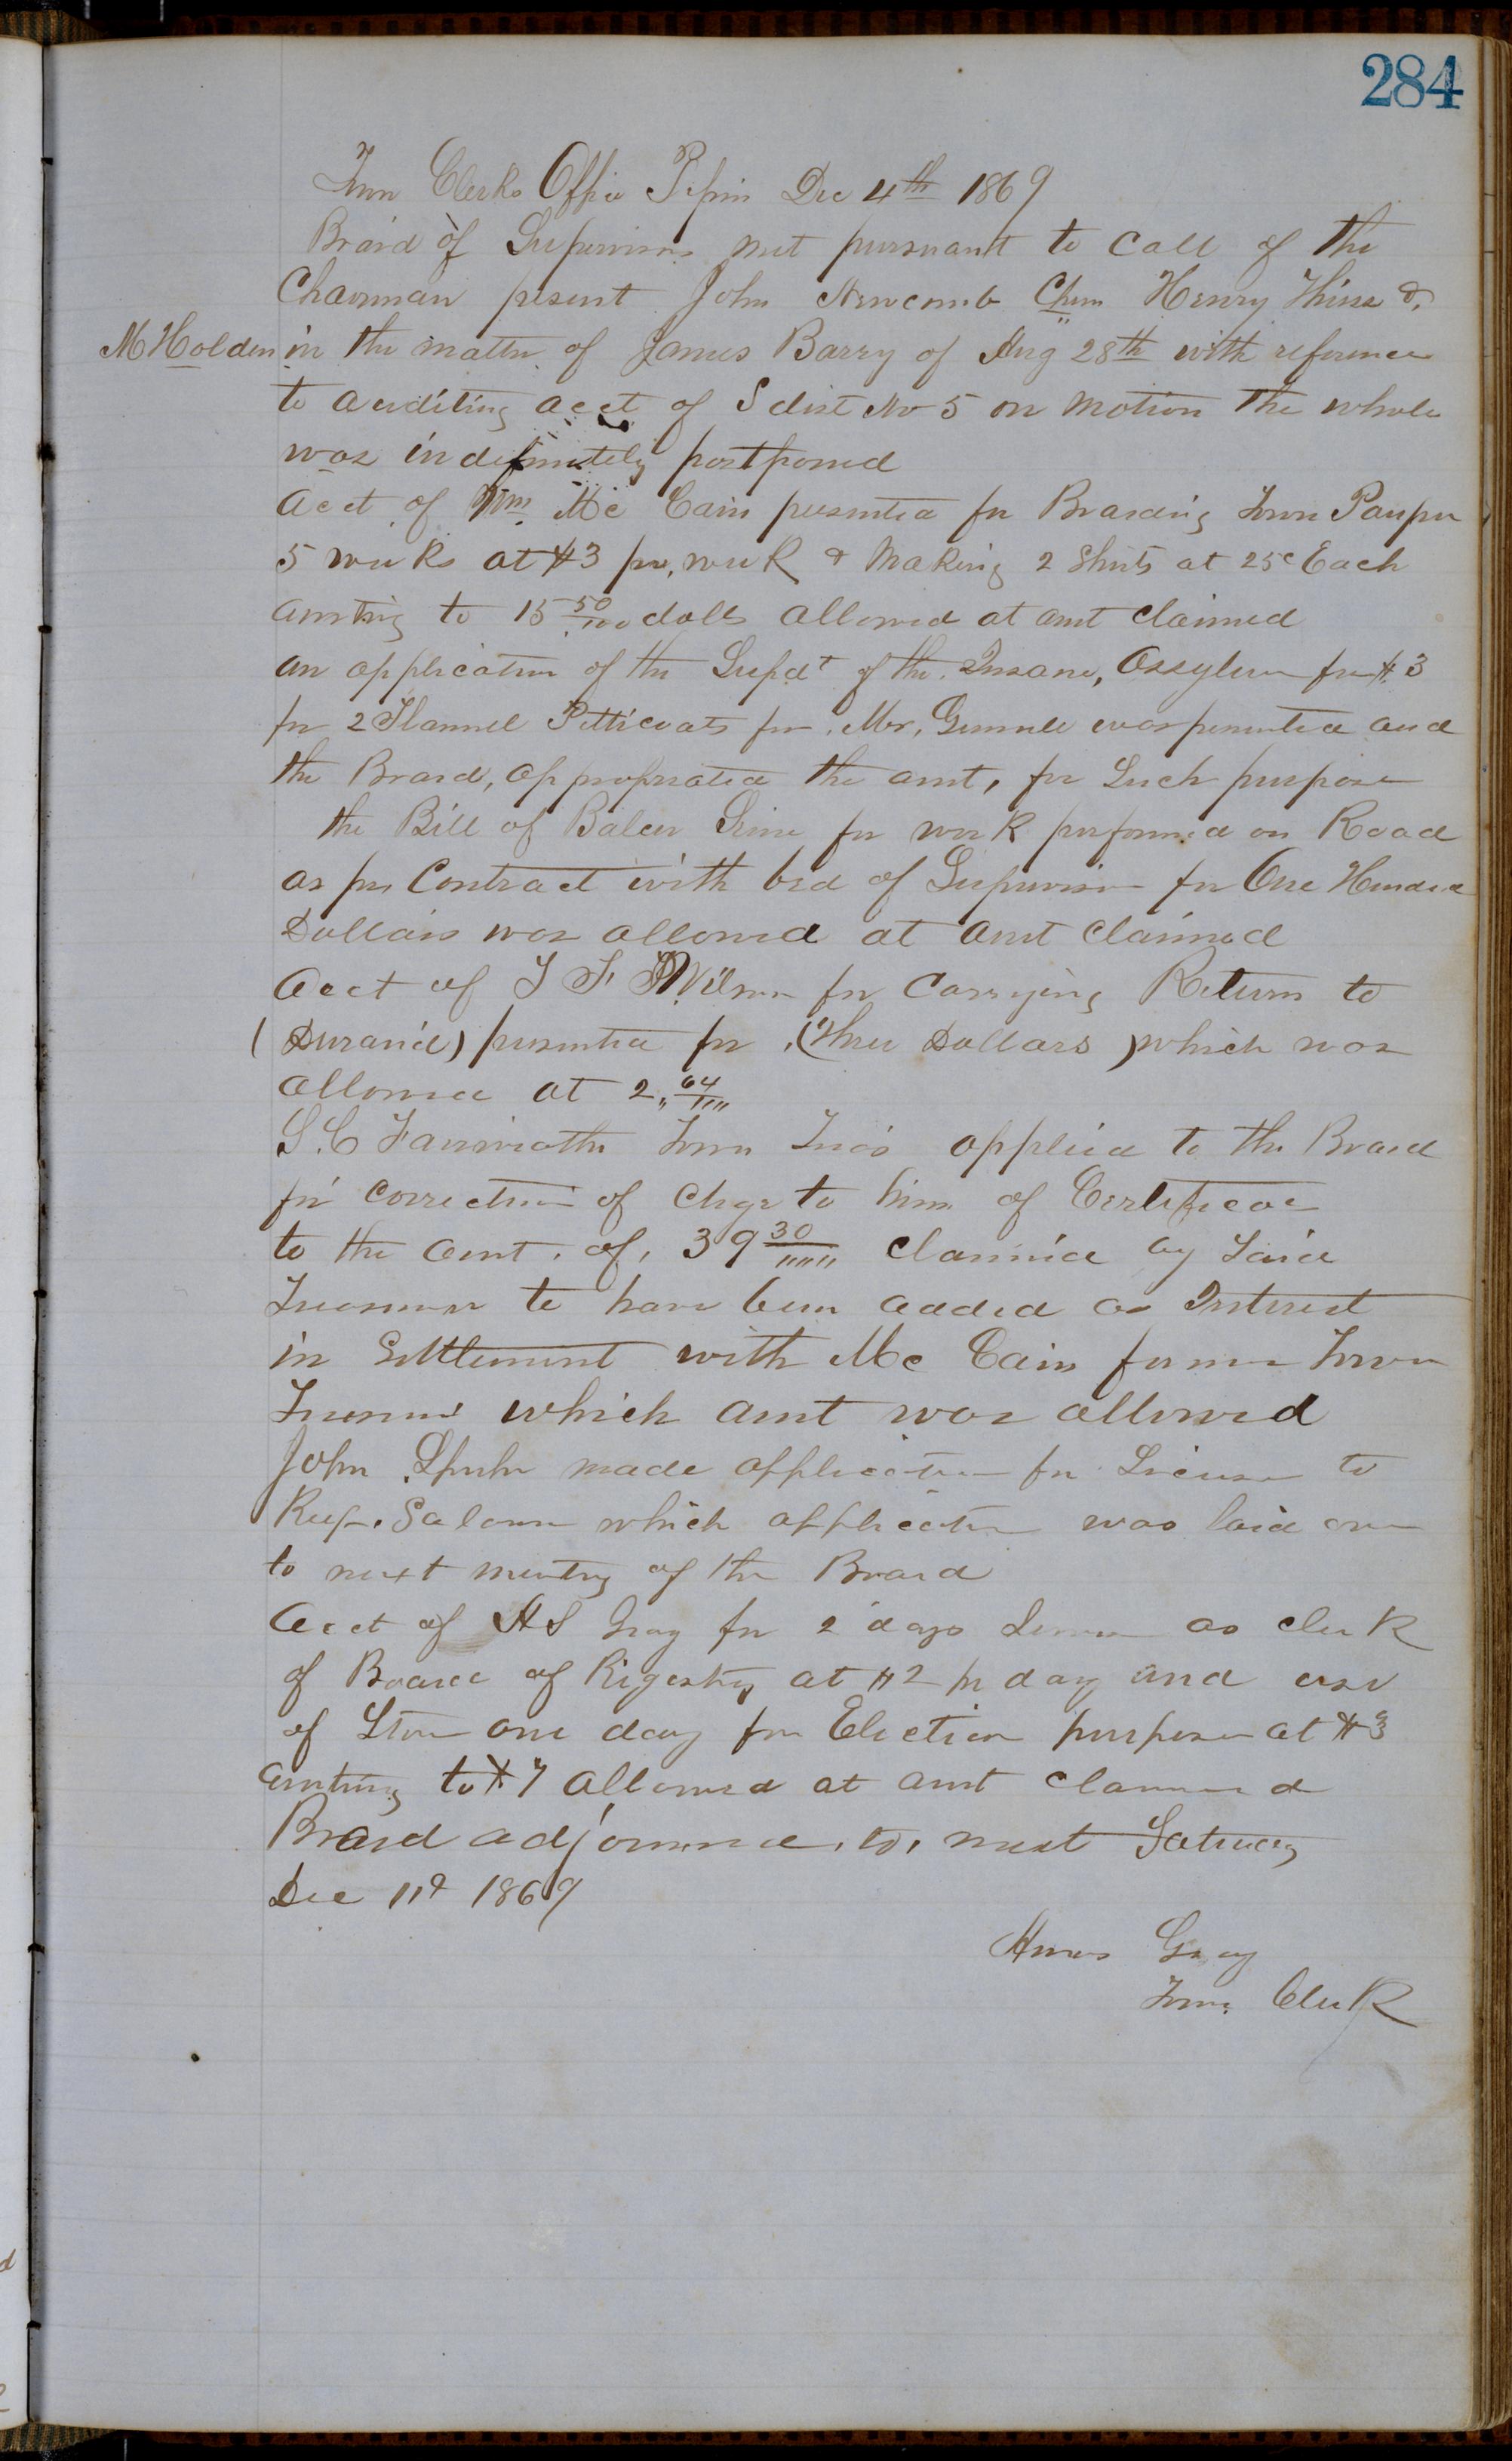 284
Town Clerks Office Pepin Dec 4th 1869
Board of Supervisors met pursuant to call of the
Chairman present John Newcomb Chm Henry &
M Holden in the matter of James Barry of Aug 28th with reference
to auditing acct of S dist No 5 on motion the whole
was indefinitely postponed
acct of Wm Mc Cain presented for Boarding Town Pauper
5 weeks at $3 per week & Making 2 Shirts at 25c Each
amting to 15 50/100 dolls allowed at amt claimed
an application of the Supdt of the Insane, Assylum for $3
for 2 Flannel Petticoats for was presented and
the Board, appropriated the amt, for Such purpose
the Bill of for work performed on Road
as per Contract with brd of Supervisors for One Hundred
Dollars was allowed at amt claimed
Acct of Wilson for Carrying Returns to
(Durand) presented for (Three Dollars) which was
allowed at 2,, 64/""
S. C Town Treas applied to the Board
for correction of chge to him of Certificate
to the amt. of, 39 30/"""" claimed by Said
Treasurer to have been added as Interest
in Settlement with Mc Cain former Town
Treasurer which amt was allowed
John made application for License to
Keep Saloon which application was laid over
to next meeting of the Board
Acct of A S Gray for 2 days Service as clerk
of Board of Registry at $2 pr day and use
of Store one day for Election purposes at $3
amting to $7 allowed at amt claimed
Board adjourned, to, next Saturday
Dec 11th 1869
Amos Gray
Town Clerk